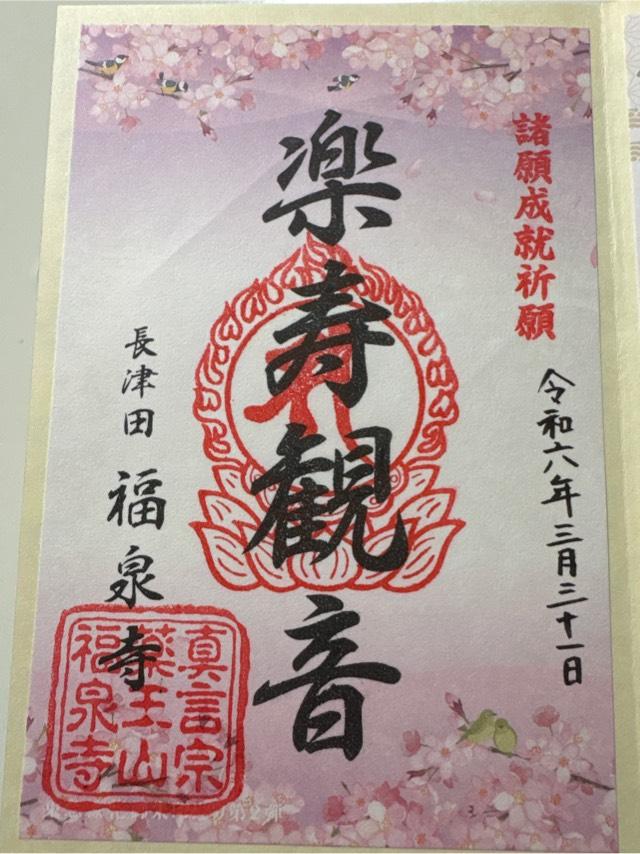 諸願成就祈願
令和六年三月三十一日
楽寿観音
長津田 福泉寺
真言宗
薬王山
福泉寺